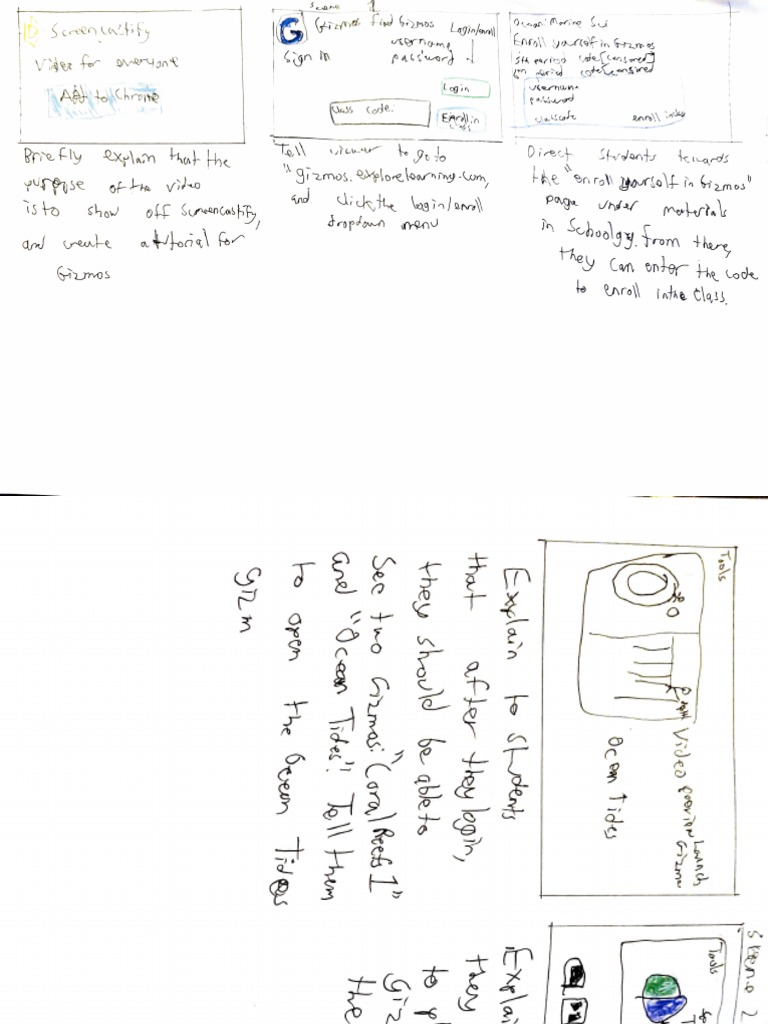 Screencastify
Video for everyone
Add to Chrome
Briefly explain that the
purpose of the video
is to show off Screencastify,
and create a tutorial for
Gizmos
Scene 1
G Gizmos Find Gizmos Login/enroll
username
Sign in password
Login
class code.
Enroll in class
Tell viewer to go to
"gizmos.explorelearning.com,
and click the login/enroll
dropdown menu
Marine Sci
Enroll yourself in Gizmos
5th period code [censored]
period code [censored]
username
password
classcode enroll in class
Direct students towards
the "enroll yourself in Gizmos"
page under materials
in Schoology. From there,
they can enter the code
to enroll in the class.
Tools
Depth
Video Launch
Gizmo
Ocean Tides
Explain to students
that after they login,
they should be able to
see two Gizmos: "Coral Reefs 1"
and "Ocean Tides". Tell them
to open the Ocean Tides
Gizm
Scene 2
Tools
Explai
they
to p
Giz
the